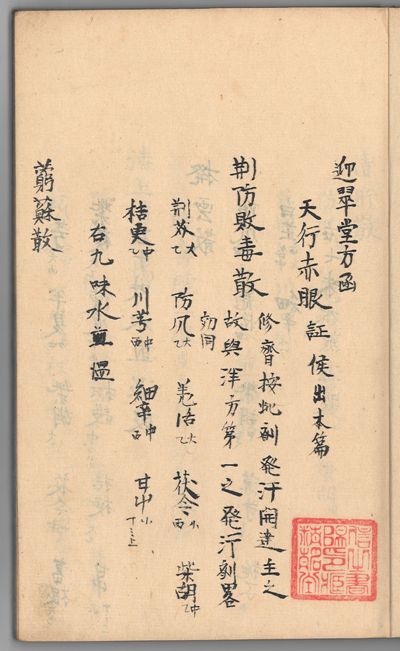 迎翠堂方函
天行赤眼 証候出本篇
荊防敗毒散 修齊按此剤発汗開達主之
故與洋方第一之発汗剤畧
効同
荊芥 大 防風 大 羌活 大 茯苓 小 柴胡 中
桔更 中 川芎 中 細辛 中 甘艸 小
右九味水煎温
藭蘇散